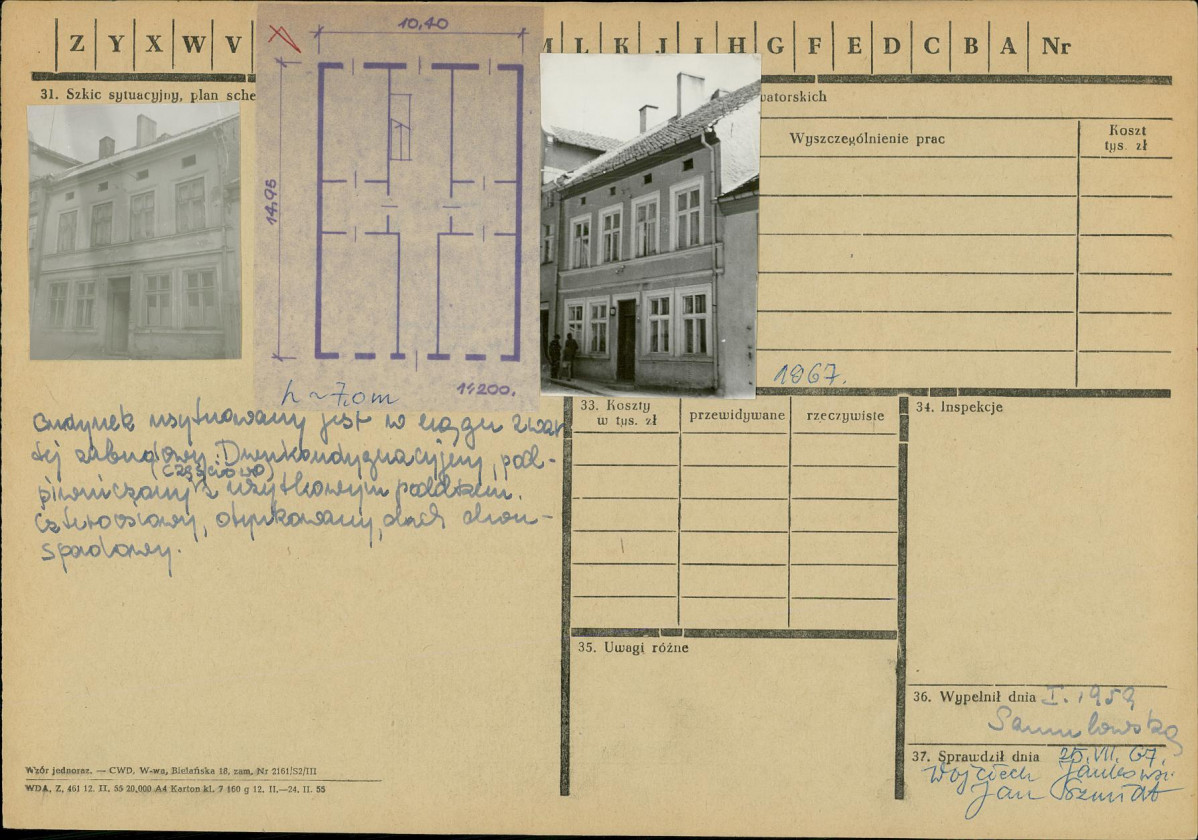 Z Y X W V M L K J I H G F E D C B A Nr
31. Szkic sytuacyjny, plan sche
watorskich
10,40
14,95
h ~ 7,0m
1:200.
Wyszczególnienie prac
Koszt
tys. zł
1967.
Budynek usytuowany jest w ciągu zwar
tej zabudowy. Dwukondygnacyjny, pod-
(częściowo)
piwniczany z użytkowym poddaszem.
Czteroosiowy, otynkowany, dach dwu-
spadowy.
33. Koszty
w tys. zł
przewidywane
rzeczywiste
34. Inspekcje
35. Uwagi różne
36. Wypełnił dnia I. 1959
Samulowska
37. Sprawdził dnia 25.VII.67.
Wojciech Jankowski
Jan Szmidt
Wzór jednoraz. — CWD, W-wa, Bielańska 18, zam. Nr 2161/S2/III
WDA, Z, 461 12. II. 55 20,000 A4 Karton kl. 7 160 g 12. II.—24. II. 55